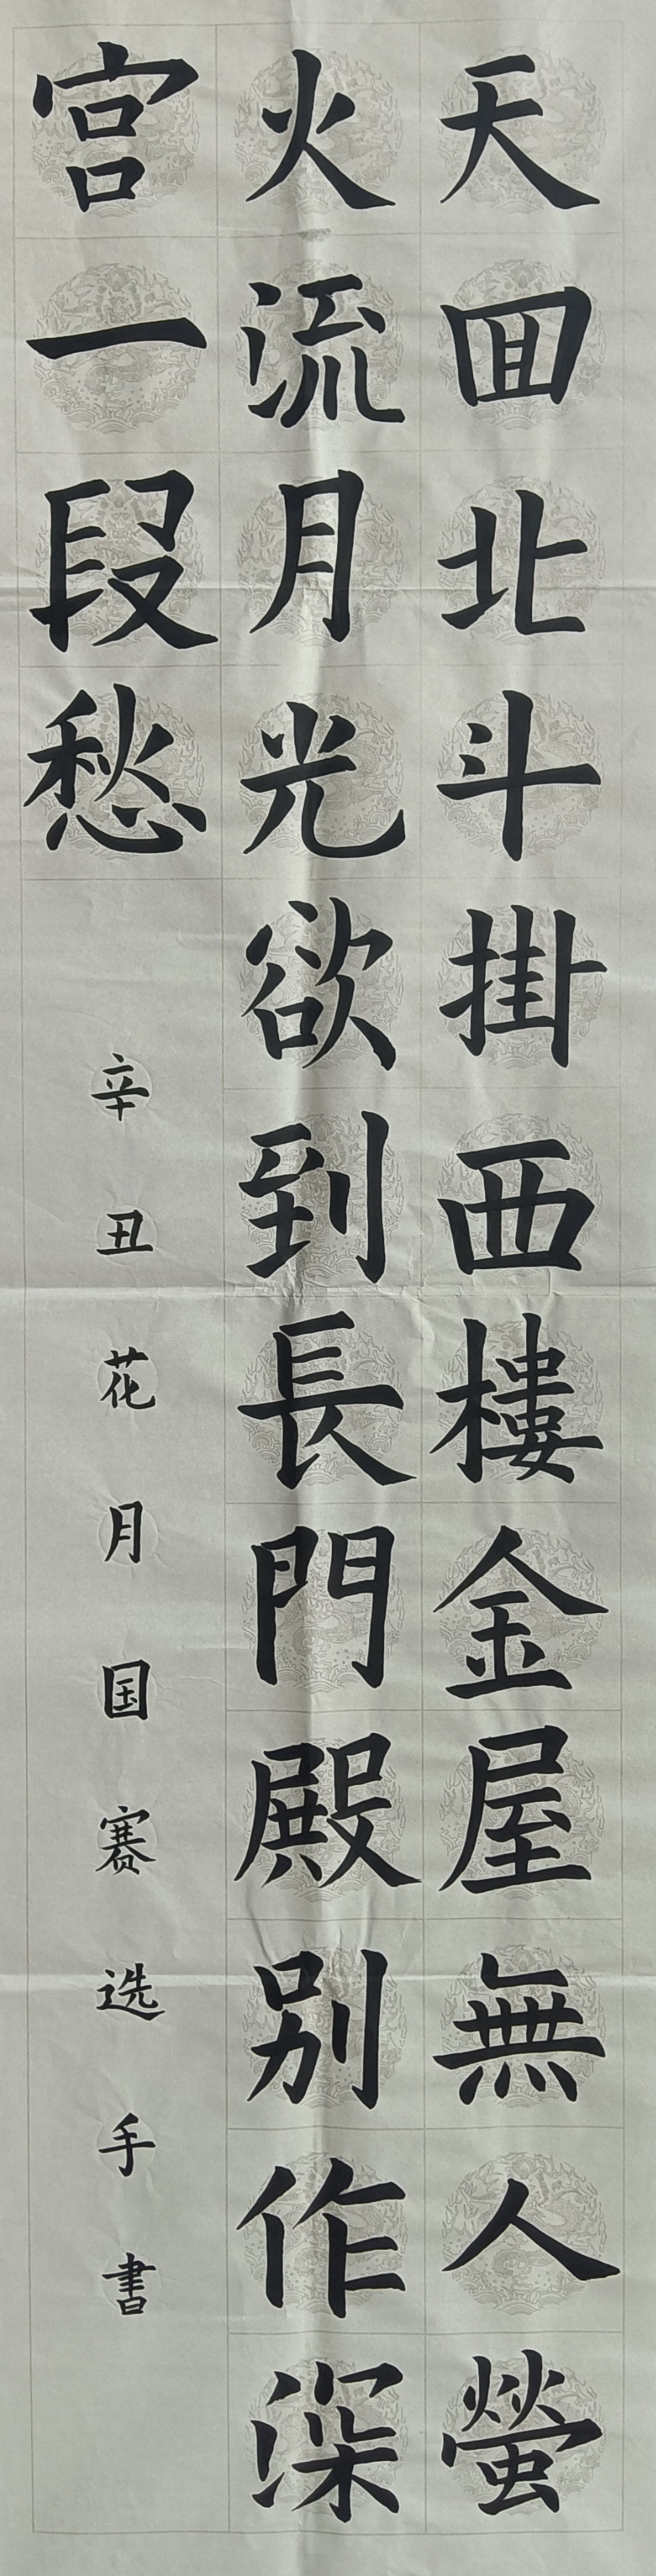 天囬北斗掛西樓金屋無人螢
火流月光欲到長門殿別作深
宮一段愁
辛丑花月国赛选手書